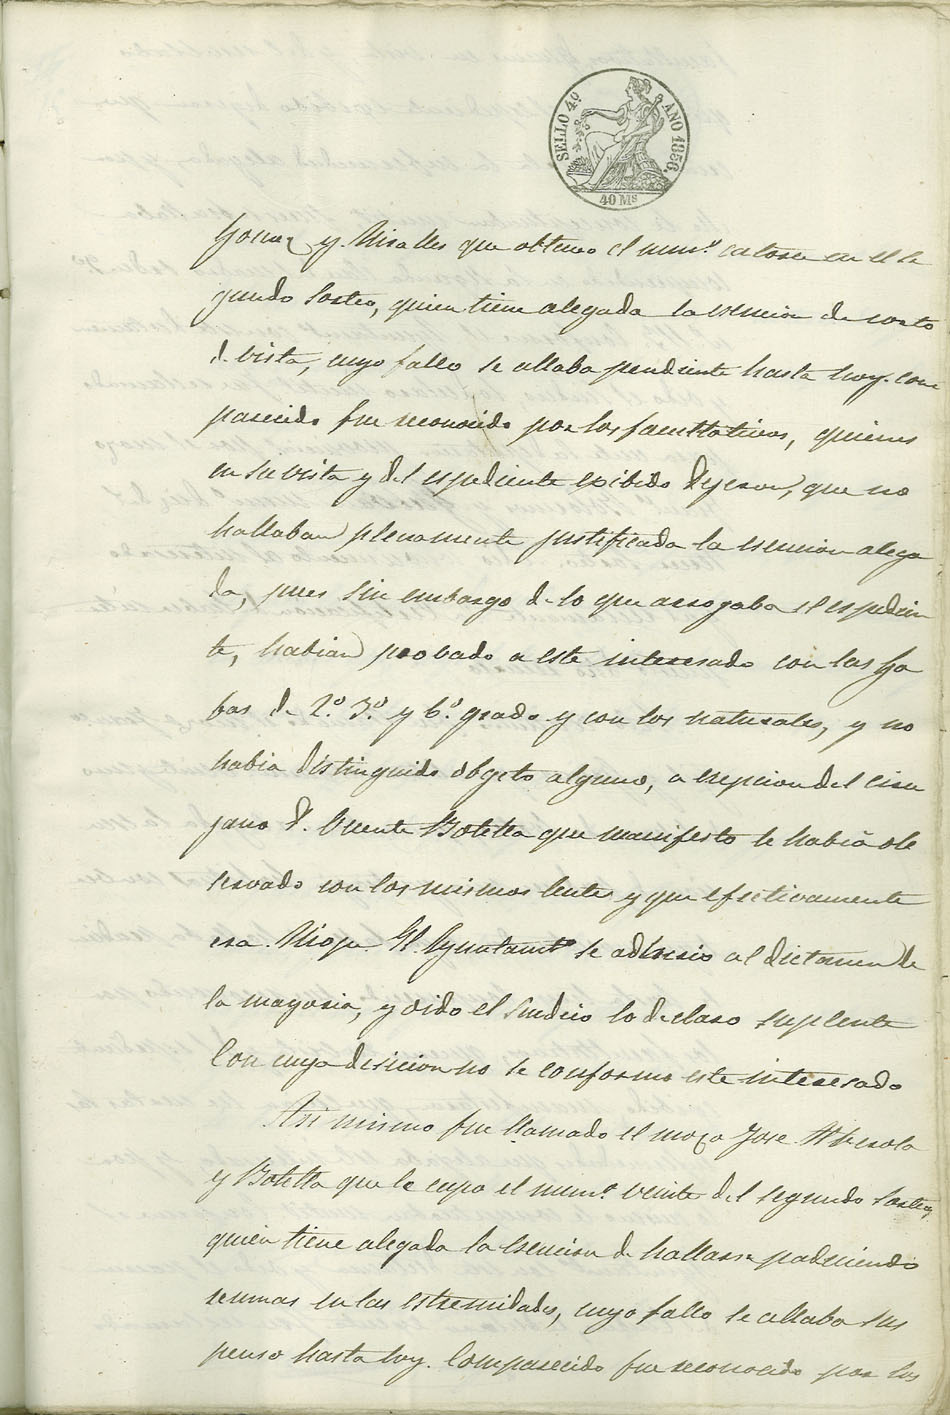 SELLO 4º AÑO 1856.
40 Ms
Gomez y Miralles que obtuvo el numº catorce en el se
gundo sorteo, quien tiene alegada la esencion de corto
de vista, cuyo fallo se allaba pendiente hasta hoy. Com
parecido fue reconocido por los facultativos, quienes
en su vista y del espediente exibido dijeron, que no
hallaban plenamente justificada la esencion alega
da, pues sin embargo de lo que arrojaba el espedien
te, habian probado a este interesado con las ga
fas de 2º 3º y 6º grado y con los naturales, y no
habia distinguido objeto alguno, a esepcion del ciru
jano D. Vicente Botella que manifesto le habia ob
servado con los mismos lentes y que efectivamente
era Miope. El Ayuntamtº se adhirio al dictamen de
la mayoria, y oido el Sindico lo declaro suplente
Con cuya desicion no se conformo este interesado
Asi mismo fue llamado el mozo Jose Abesola
y Botella que le cupo el numº veinte del segundo sorteo,
quien tiene alegada la esencion de hallarse padeciendo
reumas en las estremidades, cuyo fallo se allaba sus
penso hasta hoy. Comparecido fue reconocido por los